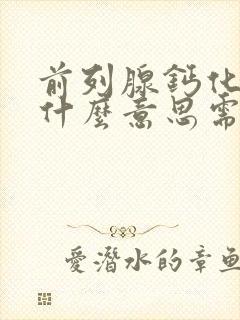 前列腺鈣化
什麼意思需
愛潛水的章魚